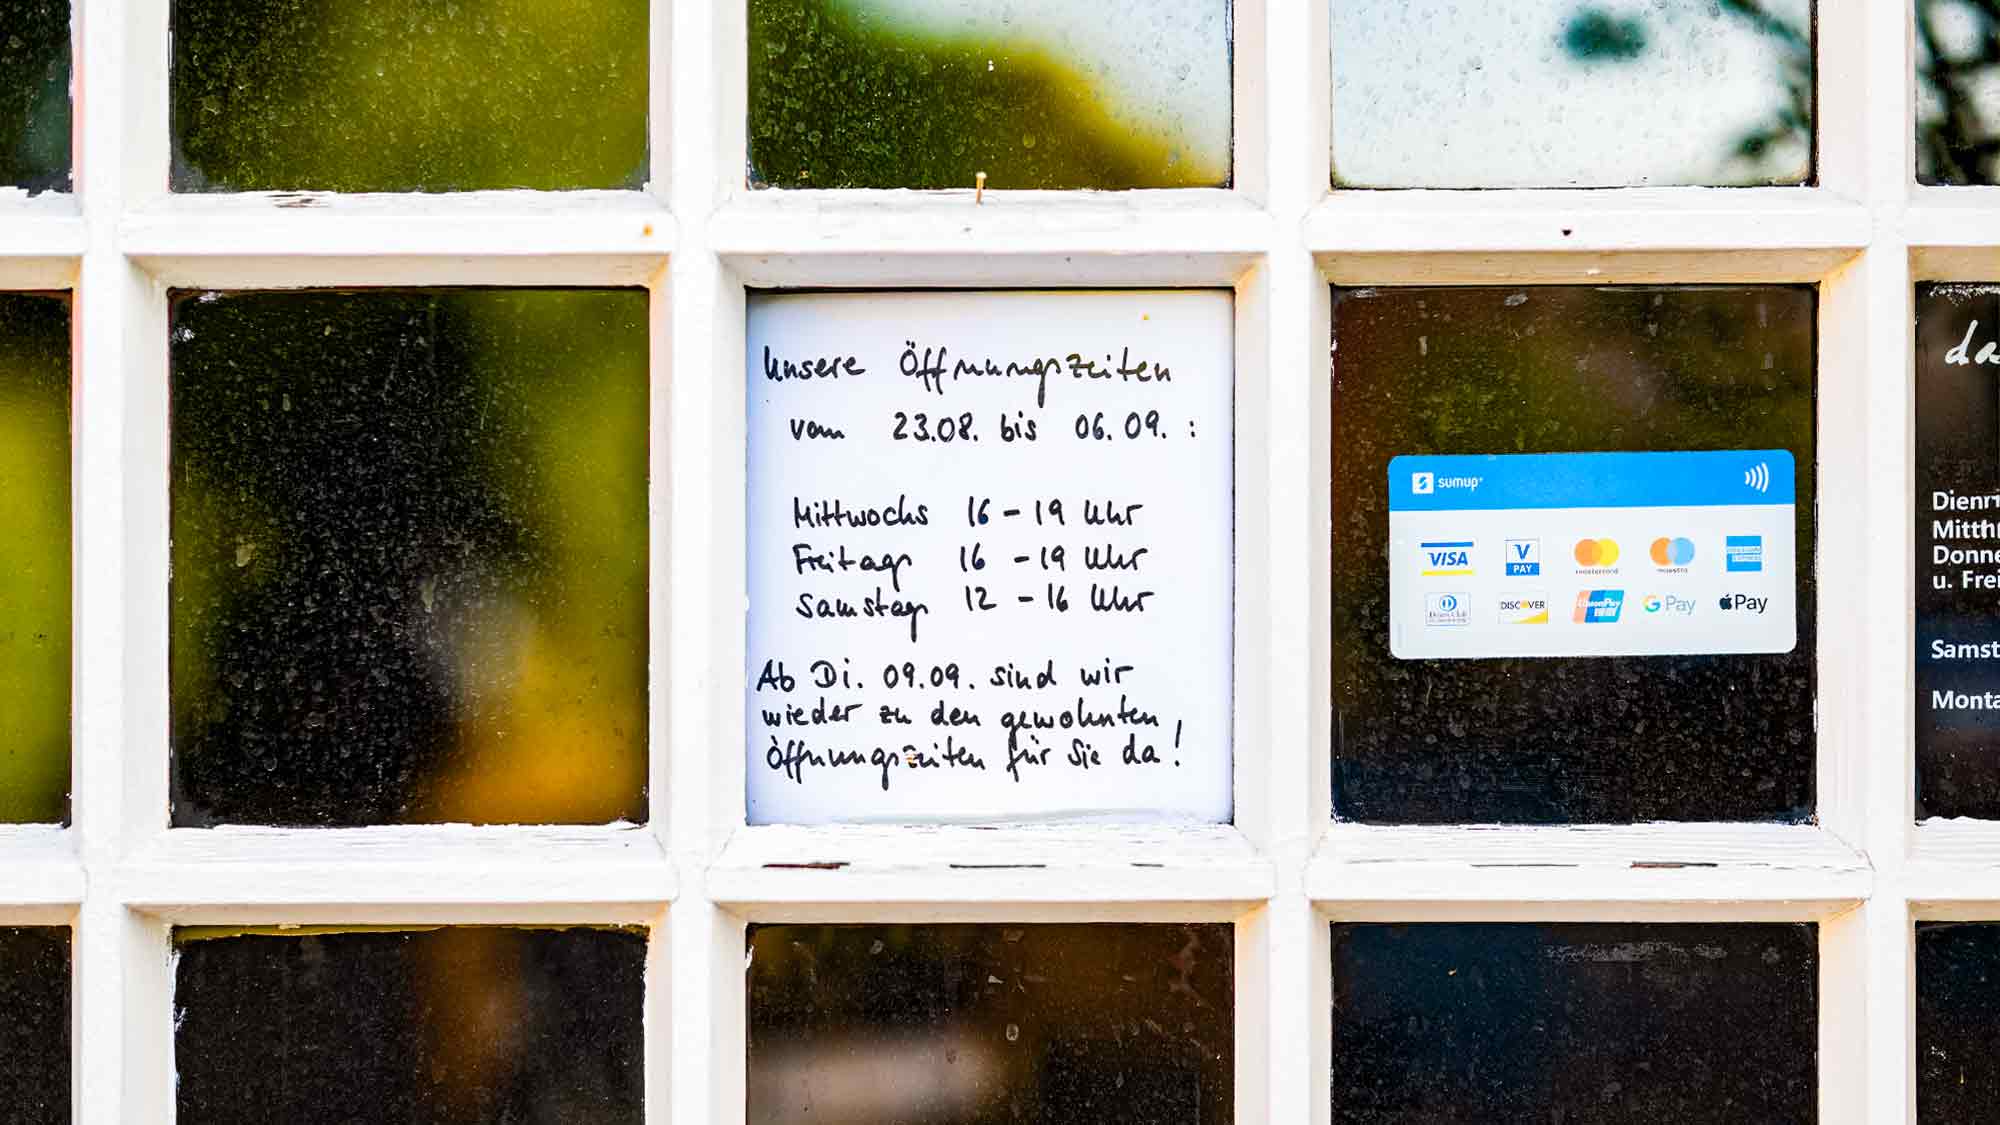 Unsere Öffnungszeiten
vom 23.08. bis 06.09. :
Mittwochs 16 - 19 Uhr
Freitags 16 - 19 Uhr
Samstags 12 - 16 Uhr
Ab Di. 09.09. sind wir
wieder zu den gewohnten
Öffnungszeiten für Sie da!
sumup
VISA
V PAY
mastercard
maestro
AMERICAN EXPRESS
Diners Club
DISCOVER
UnionPay
G Pay
Pay
da
Mitt
Donne
u. Frei
Samst
Monta